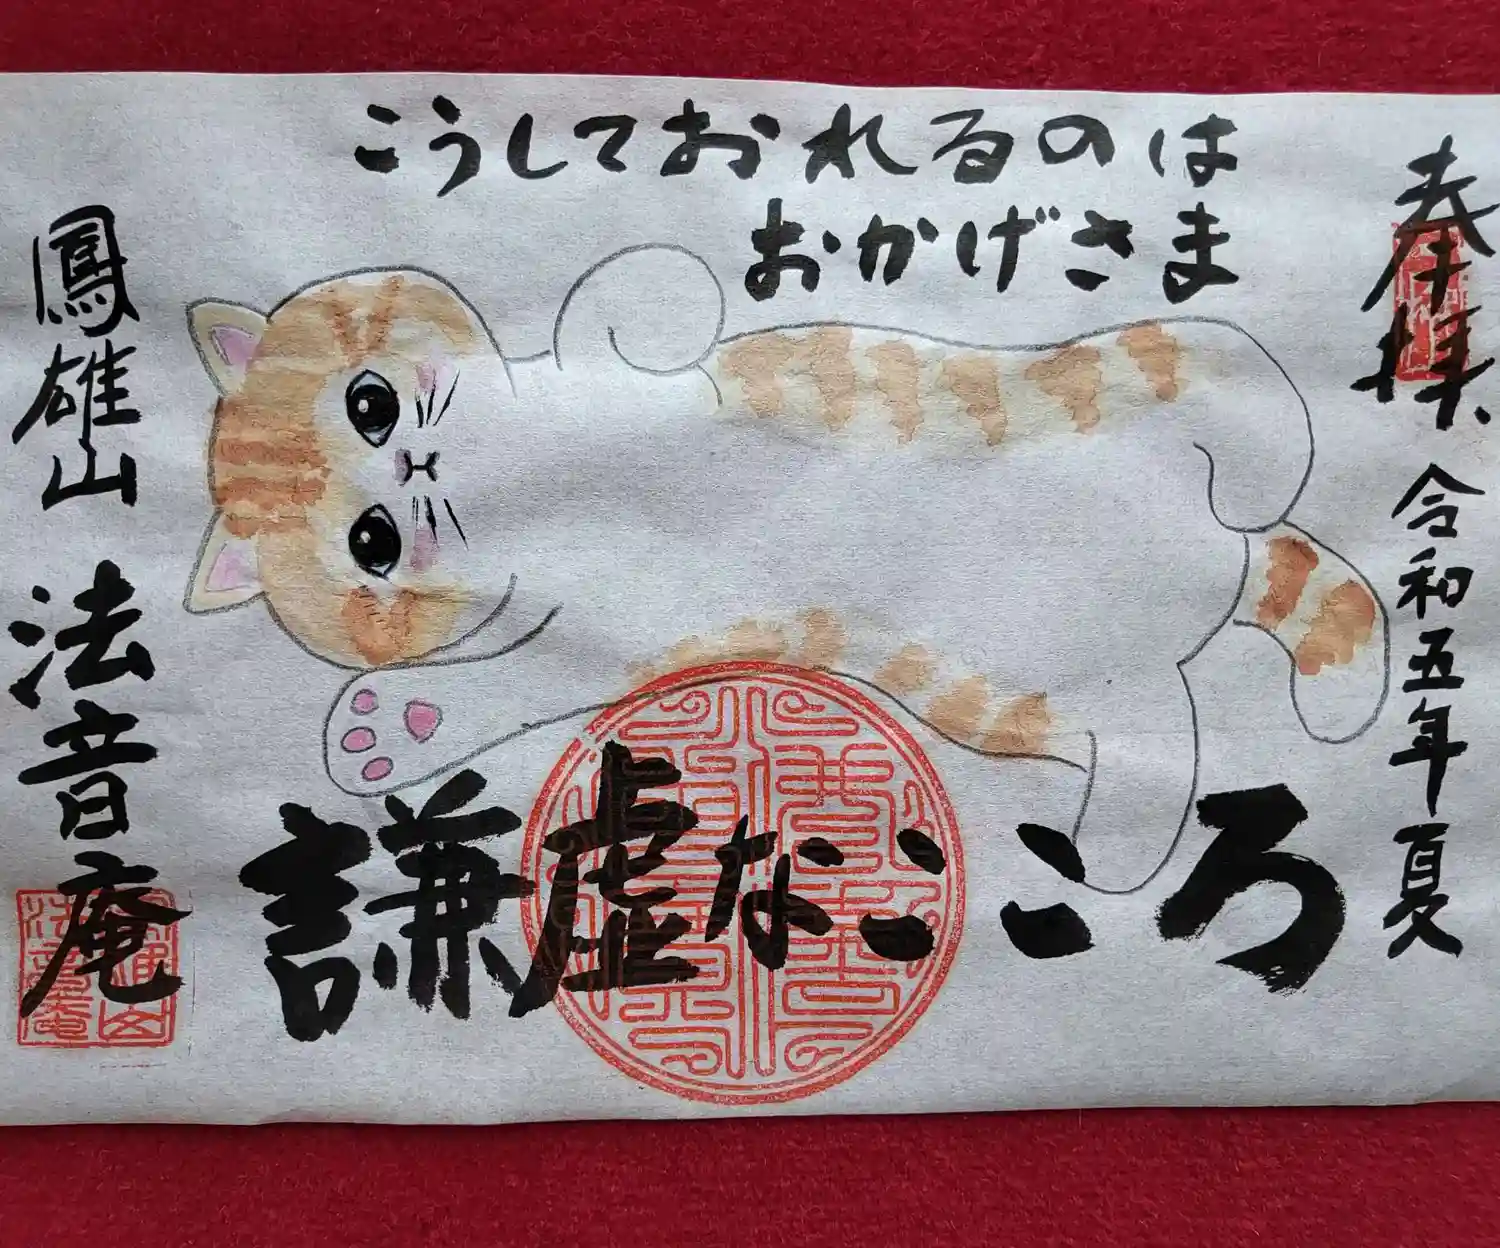 奉拝
令和五年夏
こうしておれるのは
おかげさま
謙虚なこころ
鳳雄山
法音庵